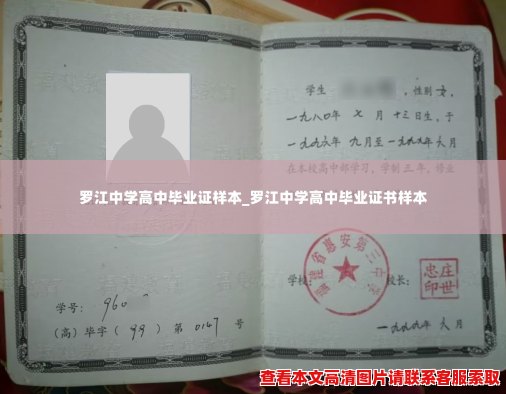 学生 ，性别 女，
一九八〇年 七 月 十三日生，于
一九九六年 九月至一九九九年 六月
在本校高中部学习，学制三年，修业
罗江中学高中毕业证样本_罗江中学高中毕业证书样本
福建省惠安第三中学
学校：
校长：
庄世忠印
学号： 960
（高）毕字（ 99 ）第 0147 号
一九九九年 六 月
查看本文高清图片请联系客服索取